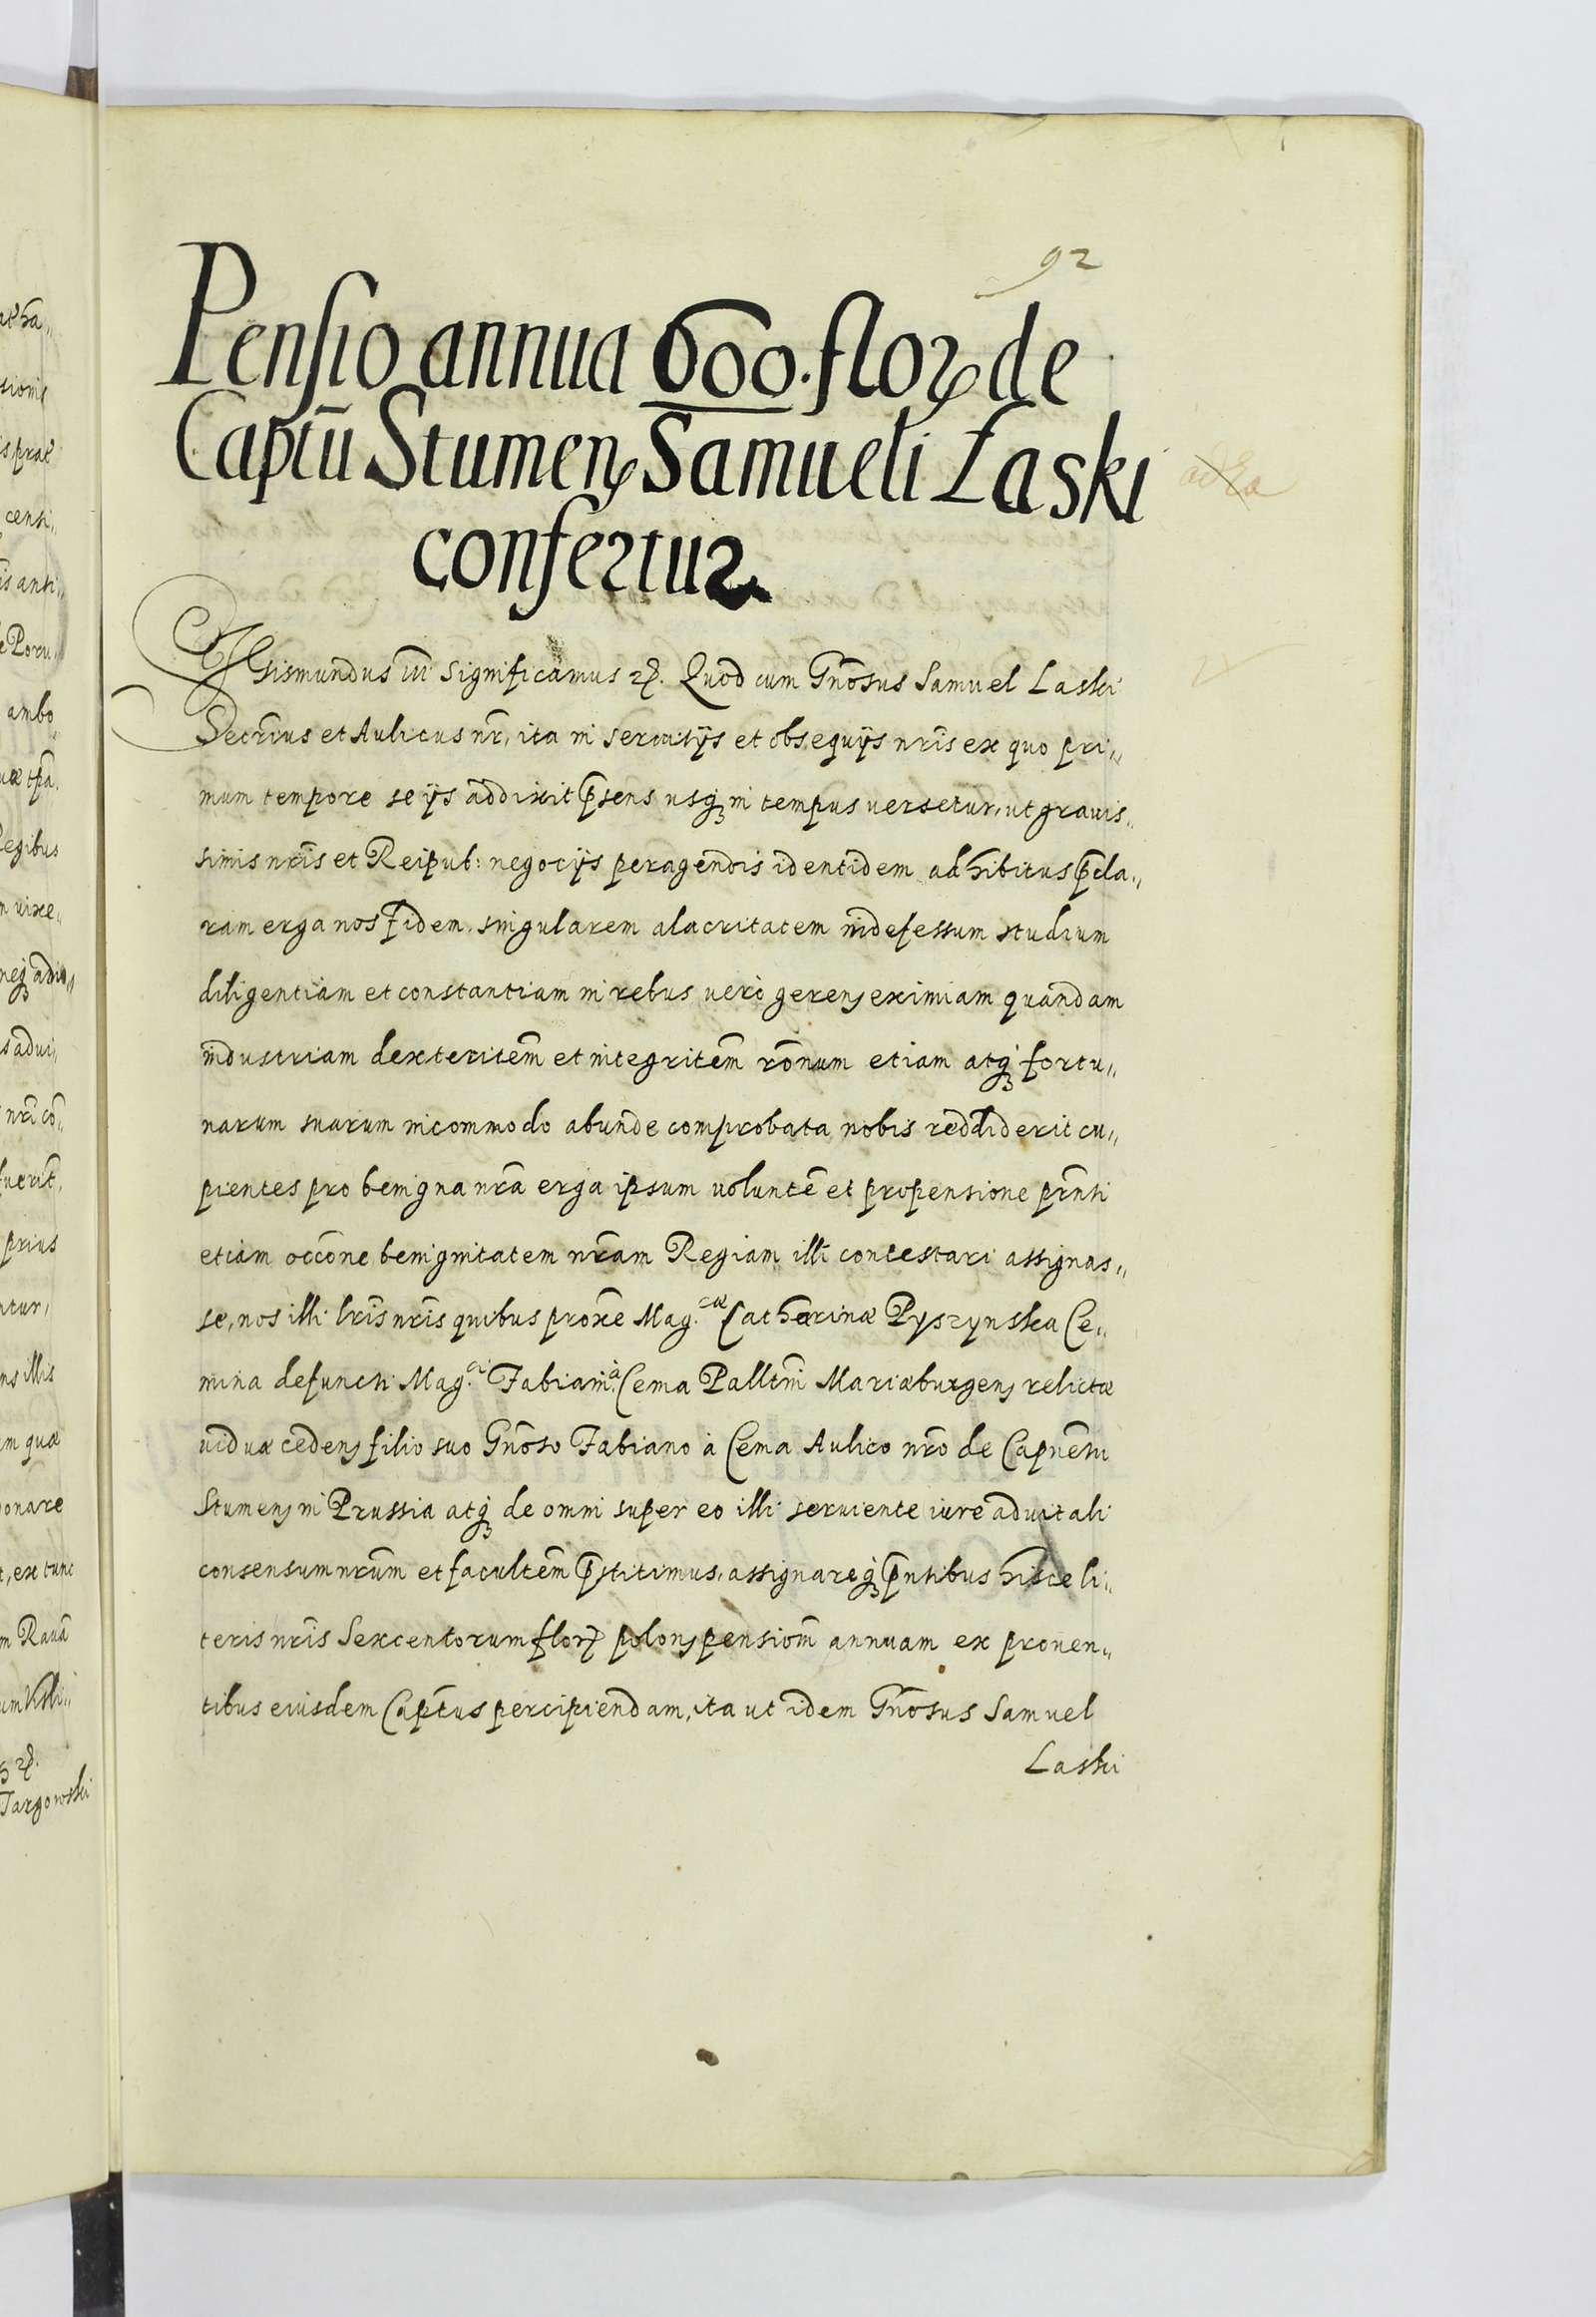 92
Pensio annua 600. floꝝ de
Captũ Stumen̄ Samueli Laski
confertur
Sigismundus III Significamus ꝛc. Quod cum Gñosus Samuel Laski
Secrius et Aulicus nr̃, ita in seruitijs et obsequijs nr̃is ex quo pri„
mum tempore se ijs addixit p̃sens usqꝫ in tempus versetur, ut grauis„
simis nr̃is et Reipub: negocijs peragendis identidem adhibitus p̃cla„
ram erga nos fidem, singularem alacritatem indefessum studium
diligentiam et constantiam in rebus uerò geren̄ eximiam quandam
industriam dexteritẽm et integritẽm rõnum etiam atqꝫ fortu„
narum suarum incommodo abunde comprobata nobis reddiderit cu„
pientes pro benigna nr̃a erga ipsum voluntẽ et propensione pr̃nti
etiam occõne benignitatem nr̃am Regiam illi contestari assignas„
se, nos illi lr̃is nr̃is quibus proxe Mag.cæ Catherinæ Pyszynska Ce„
mina defuncti Mag.ci Fabiani à Cema Palltñi Mariæburgen̄ relictæ
uiduæ ceden̄ filio suo Gñoso Fabiano à Cema Aulico nr̃o de Capnẽtu
Stumen̄ in Prussia atqꝫ de omni super eo illi seruiente iure aduitali
consensum nr̃um et facultẽm p̃stitimus, assignareqꝫ p̃ntibus hisce li„
teris nr̃is Sexcentorum floꝝ polon̄ pensioñm annuam ex prouen„
tibus eiusdem Capt̃us percipiendam, ita ut idem Gñosus Samuel
Laski